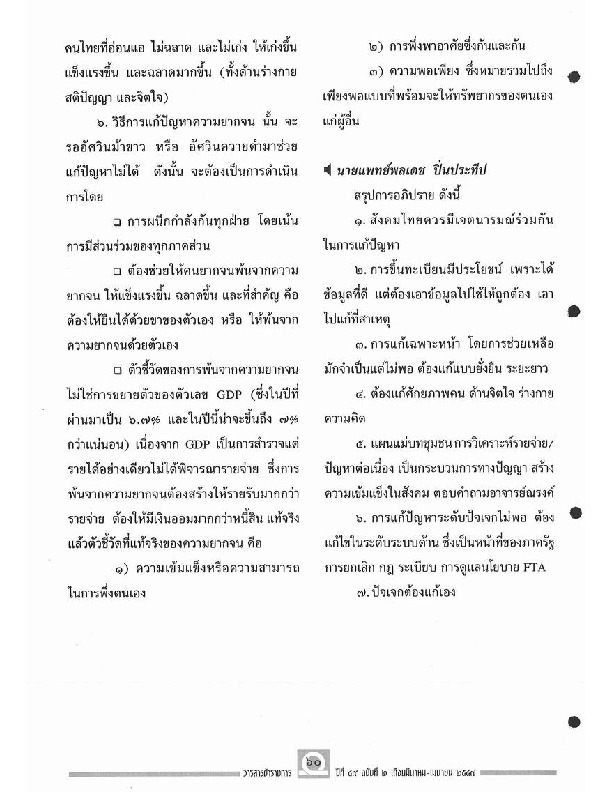 คนไทยที่อ่อนแอ ไม่ฉลาด และไม่เก่ง ให้เก่งขึ้น
แข็งแรงขึ้น และฉลาดมากขึ้น (ทั้งด้านร่างกาย
สติปัญญา และจิตใจ)
๖. วิธีการแก้ปัญหาความยากจน นั้น จะ
รออัศวินม้าขาว หรือ อัศวินควายดำมาช่วย
แก้ปัญหาไม่ได้ ดังนั้น จะต้องเป็นการดำเนิน
การโดย
❑ การผนึกกำลังกันทุกฝ่าย โดยเน้น
การมีส่วนร่วมของทุกภาคส่วน
❑ ต้องช่วยให้คนยากจนพ้นจากความ
ยากจน ให้แข็งแรงขึ้น ฉลาดขึ้น และที่สำคัญ คือ
ต้องให้ยืนได้ด้วยขาของตัวเอง หรือ ให้พ้นจาก
ความยากจนด้วยตัวเอง
❑ ตัวชี้วัดของการพ้นจากความยากจน
ไม่ใช่การขยายตัวของตัวเลข GDP (ซึ่งในปีที่
ผ่านมาเป็น ๖.๗% และในปีนี้น่าจะขึ้นถึง ๗%
กว่าแน่นอน) เนื่องจาก GDP เป็นการสำรวจแต่
รายได้อย่างเดียวไม่ได้พิจารณารายจ่าย ซึ่งการ
พ้นจากความยากจนต้องสร้างให้รายรับมากกว่า
รายจ่าย ต้องให้มีเงินออมมากกว่าหนี้สิน แท้จริง
แล้วตัวชี้วัดที่แท้จริงของความยากจน คือ
๑) ความเข้มแข็งหรือความสามารถ
ในการพึ่งตนเอง
๒) การพึ่งพาอาศัยซึ่งกันและกัน
๓) ความพอเพียง ซึ่งหมายรวมไปถึง
เพียงพอแบบที่พร้อมจะให้ทรัพยากรของตนเอง
แก่ผู้อื่น
นายแพทย์พลเดช ปิ่นประทีป
สรุปการอภิปราย ดังนี้
๑. สังคมไทยควรมีเจตนารมณ์ร่วมกัน
ในการแก้ปัญหา
๒. การขึ้นทะเบียนมีประโยชน์ เพราะได้
ข้อมูลที่ดี แต่ต้องเอาข้อมูลไปใช้ให้ถูกต้อง เอา
ไปแก้ที่สาเหตุ
๓. การแก้เฉพาะหน้า โดยการช่วยเหลือ
มักจำเป็นแต่ไม่พอ ต้องแก้แบบยั่งยืน ระยะยาว
๔. ต้องแก้ศักยภาพคน ด้านจิตใจ ร่างกาย
ความคิด
๕. แผนแม่บทชุมชน การวิเคราะห์รายจ่าย/
ปัญหาต่อเนื่อง เป็นกระบวนการทางปัญญา สร้าง
ความเข้มแข็งในสังคม ตอบคำถามอาจารย์ณรงค์
๖. การแก้ปัญหาระดับปัจเจกไม่พอ ต้อง
แก้ไขในระดับระบบด้าน ซึ่งเป็นหน้าที่ของภาครัฐ
การยกเลิก กฎ ระเบียบ การดูแลนโยบาย FTA
๗. ปัจเจกต้องแก้เอง
วารสารข้าราชการ ๖๐ ปีที่ ๔๙ ฉบับที่ ๒ เดือนมีนาคม-เมษายน ๒๕๔๗